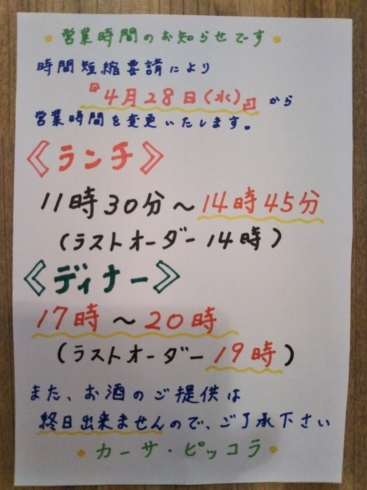 ・営業時間のお知らせです・
時間短縮要請により
『4月28日(水)』から
営業時間を変更いたします。
《ランチ》
11時30分〜14時45分
(ラストオーダー14時)
《ディナー》
17時〜20時
(ラストオーダー19時)
また、お酒のご提供は
終日出来ませんので、ご了承下さい
・カーサ・ピッコラ・